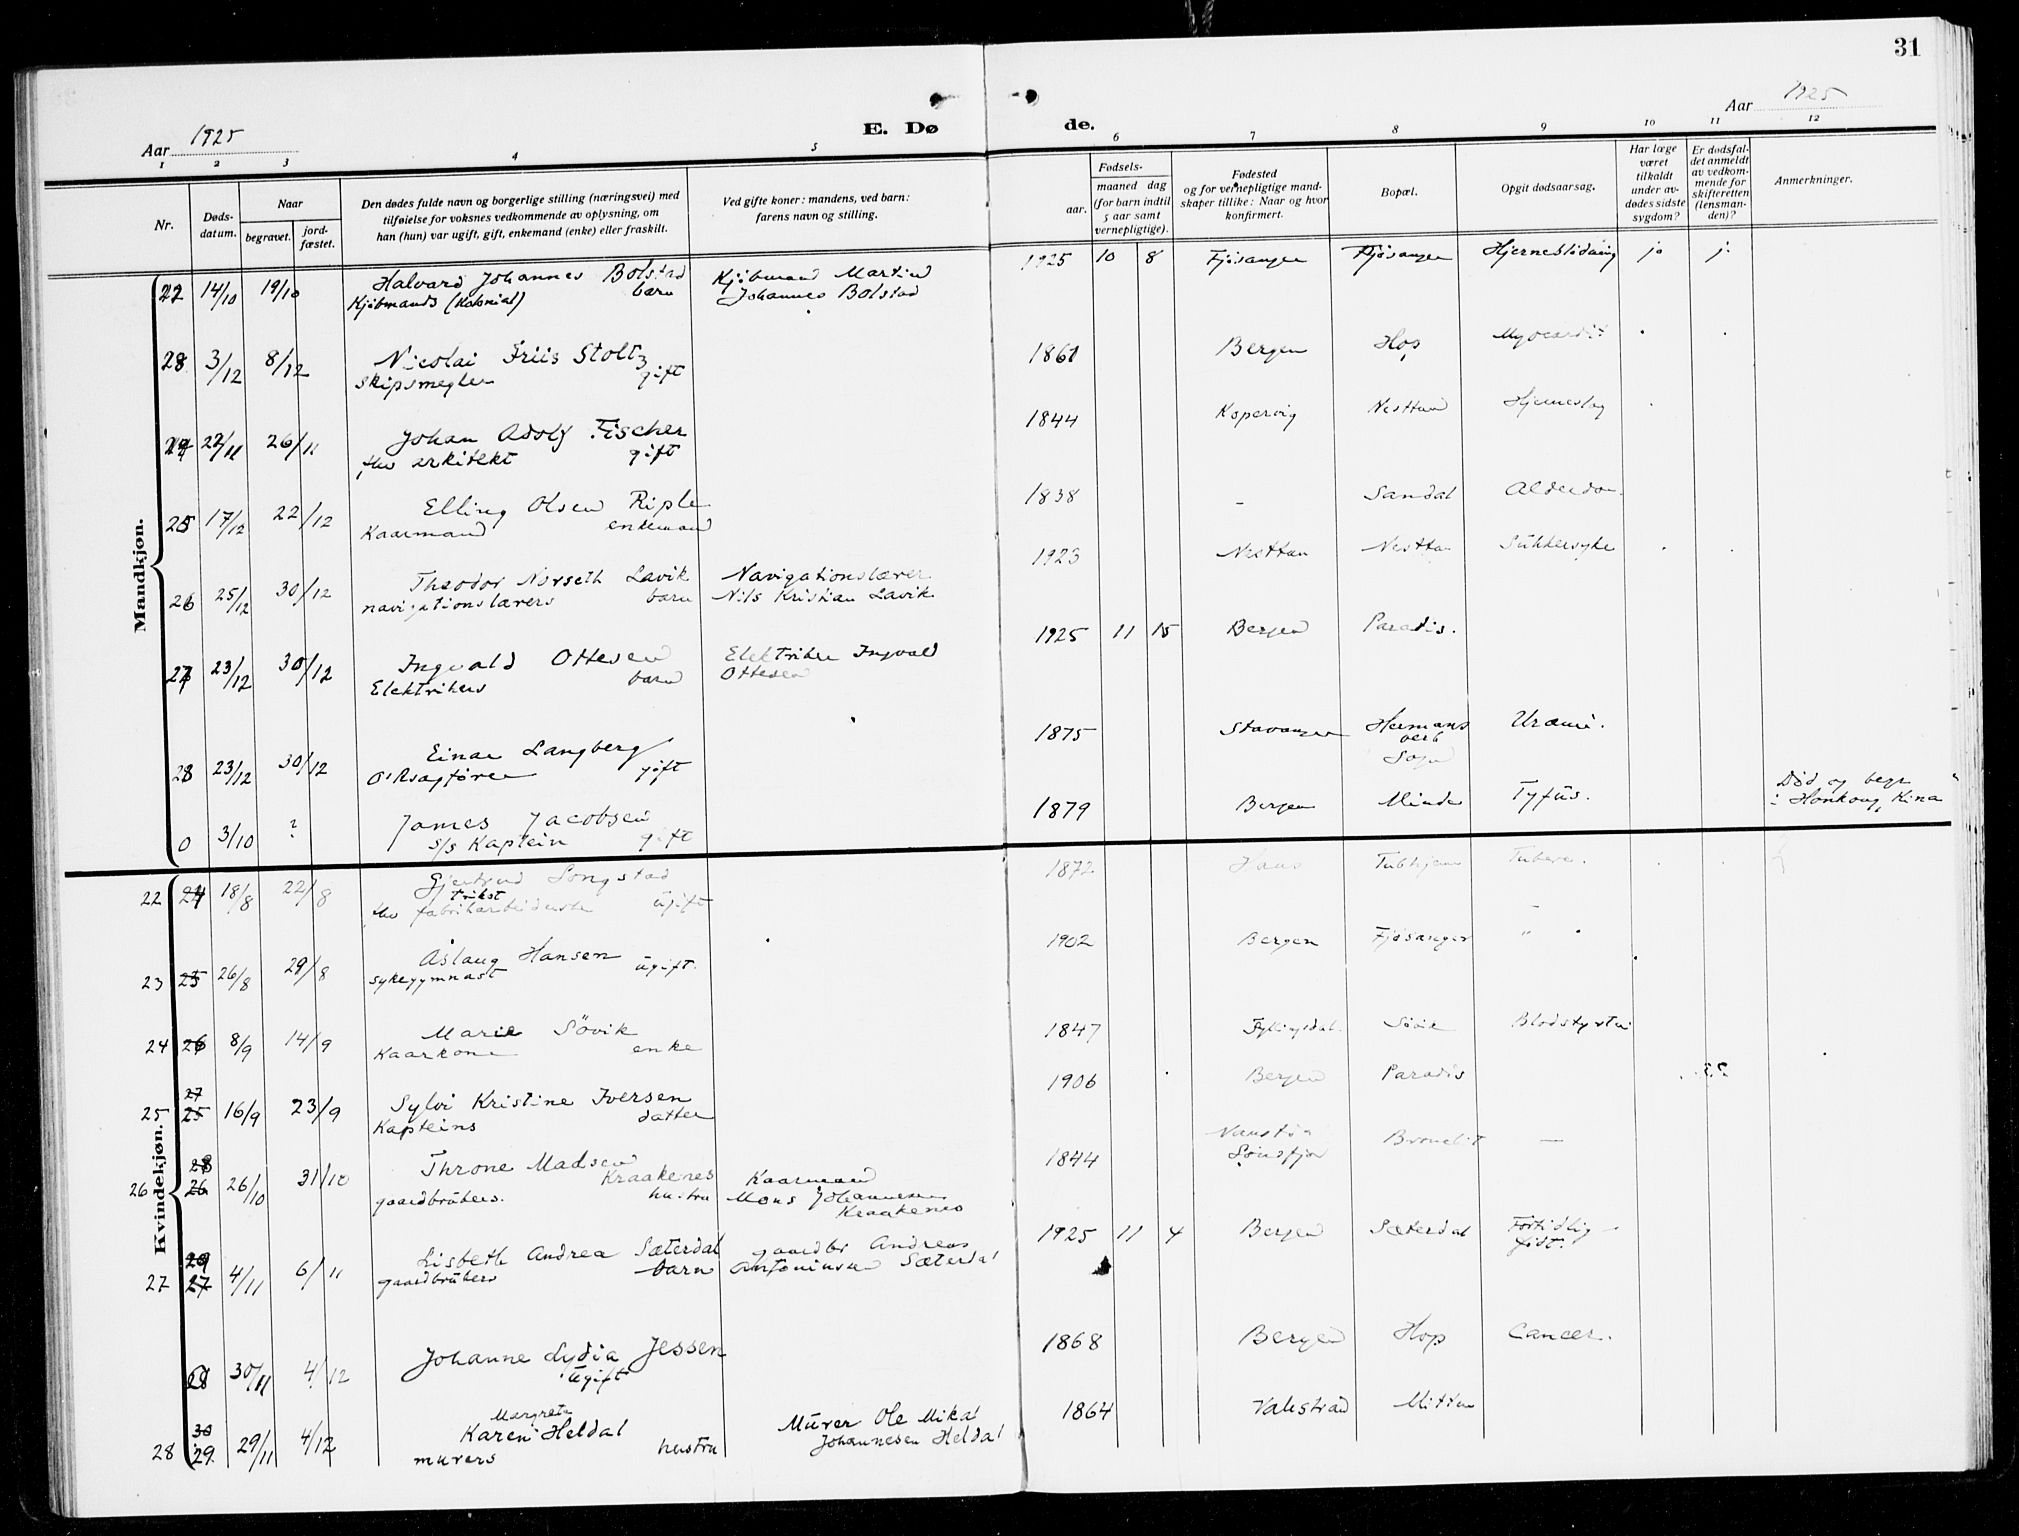 31
Aar 1925
E. Dø
de.
Aar 1925
1 2 3 4 5 6 7 8 9 10 11 12
Nr.
Døds-
datum.
Naar
begravet.
jord-
fæstet.
Den dødes fulde navn og borgerlige stilling (næringsvei) med
tilføielse for voksnes vedkommende av oplysning, om
han (hun) var ugift, gift, enkemand (enke) eller fraskilt.
Ved gifte koner: mandens, ved barn:
farens navn og stilling.
Fødsels-
aar.
maaned dag
(for barn indtil
5 aar samt
vernepligtige).
Fødested
og for vernepligtige mand-
skaper tillike: Naar og hvor
konfirmert.
Bopæl.
Opgit dødsaarsag.
Har læge
været
tilkaldt
under av-
dødes sidste
sygdom?
Er dødsfal-
det anmeldt
av vedkom-
mende for
skifteretten
(lensman-
den)?
Anmerkninger.
Mandkjøn.
22 14/10 19/10 Halvard Johannes Bolstad Kjøbmand Martin 1925 10 8 Fjøsanger Fjøsanger Hjerneblødning jo j.
Kjøbmands (Kolonial) barn Johannes Bolstad
28 3/12 8/12 Nicolai Friis Stoltz 1861 Bergen Hop Myocardit
Skipsmegler gift
22/11 26/11 Johan Adolf Fischer 1844 Kopervig Nesttun Hjerneslag
fhv arkitekt gift
25 17/12 22/12 Elling Olsen Riple 1838 - Sandal Alderdom
Kaarmand enkemand
26 25/12 30/12 Theodor Norseth Lavik Navigationslærer 1923 Nesttun Nesttun Sukkersyke
navigationslærers barn Nils Kristian Lavik
27 23/12 30/12 Ingvald Ottesen Elektriker Ingvald 1925 11 15 Bergen Paradis.
Elektrikers barn Ottesen
28 23/12 30/12 Einar Langberg 1875 Stavanger Hermans Uræmi.
O'Rsagfører gift verk
Sogn
0 3/10 ? James Jacobsen 1879 Bergen Minde Tyfus. Død og begr
s/s Kaptein gift i Honkong, Kina
Kvindekjøn.
22 24 18/8 22/8 Gjertrud Songstad 1872 Haus Tubhjem Tuberk.
trikst
fhv fabrikarbeiderske ugift
23 25 26/8 29/8 Åslaug Hansen 1902 Bergen Fjøsanger "
sykegymnast ugift.
24 26 8/9 14/9 Marie Søvik 1847 Fyllingsdal. Søvik Blodstyrtn.
Kaarkone enke
27
25 25 16/9 23/9 Sylvi Kristine Iversen 1906 Bergen Paradis ??
Kapteins datter
28
26 26 26/10 31/10 Throne Madsen Kaarmand 1844 Sønsfjor
Kraakenes
gaardbrukers. hustru Mons Johannesen
Kraakenes
29
27 27 4/11 6/11 Lisbeth Andrea Sæterdal gaardbr Andreas 1925 11 4 Bergen Sæterdal Førtidlig
gaardbrukers barn Antoninsen Sæterdal født.
28 30/11 4/12 Johanne Lydia Jessen 1868 Bergen Hop Cancer.
Ugift
30
28 29. 29/11 4/12 Margrete
Karen Heldal Murer Ole Mikal 1864 Valestrand Mittun
murers hustru Johannesen Heldal